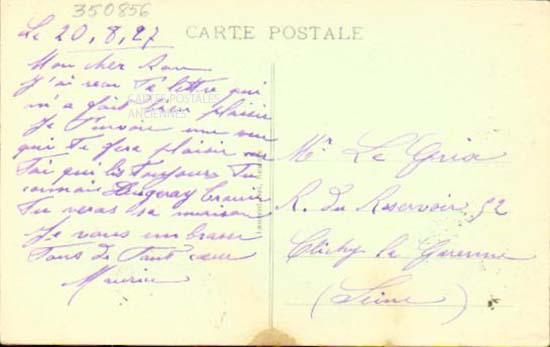 350856
Le 20, 8, 27
CARTE POSTALE
Mon cher
J'ai reçu Ta lettre qui
m'a fait bien plaisir
CARTES POSTALES
ANCIENNES
Je T'envoie une vue
qui Te fera plaisir
Toi qui lis Toujours Tu
connais
Tu veras sa maison
Je vous embrasse
Tous de Tout cœur
Maurice
Mr Le
R. du Reservoir 52
Clichy la Garenne
(Seine)